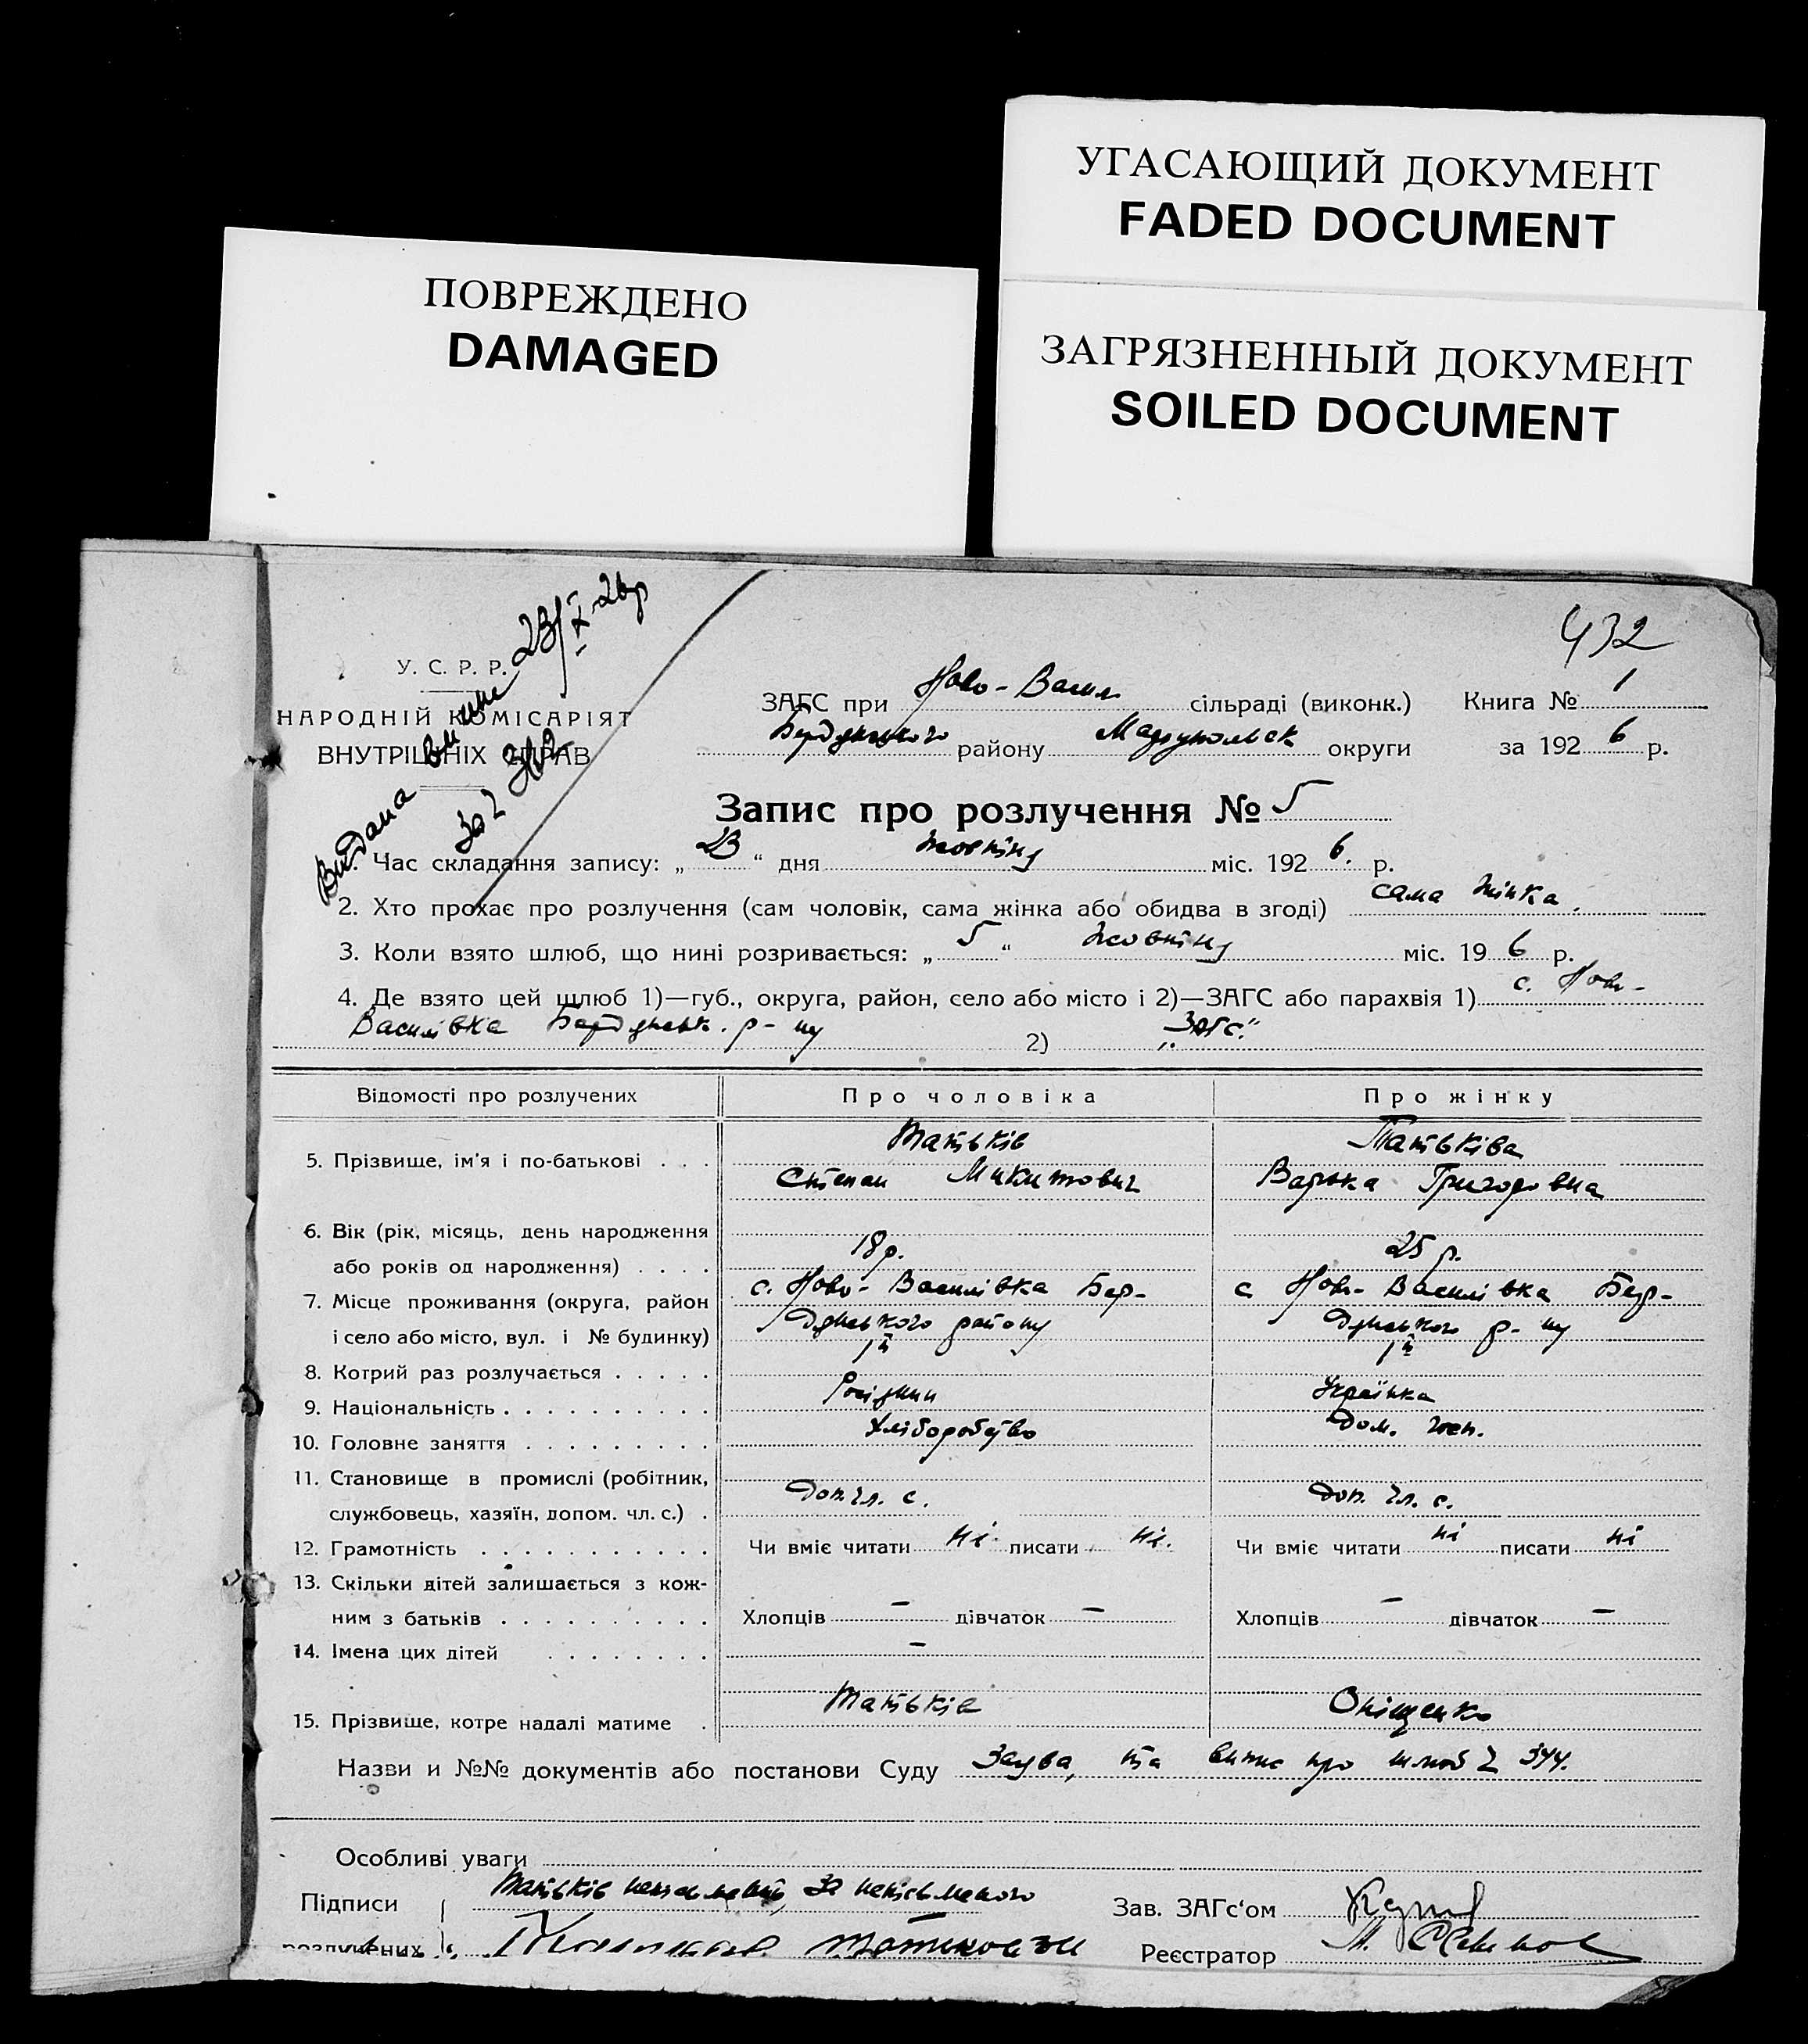 УГАСАЮЩИЙ ДОКУМЕНТ
FADED DOCUMENT
ПОВРЕЖДЕНО
DAMAGED
ЗАГРЯЗНЕННЫЙ ДОКУМЕНТ
SOILED DOCUMENT
432
Видана виписка 23/X 26р
за № 342
У. С. Р. Р.
НАРОДНІЙ КОМІСАРІЯТ
ВНУТРІШНІХ СПРАВ
ЗАГС при Ново-Васил. сільраді (виконк.) Книга № 1
Бердянського району Маріупольськ округи за 1926 р.
Запис про розлучення № 5
1. Час складання запису: „23“ дня жовтня міс. 1926. р.
2. Хто прохає про розлучення (сам чоловік, сама жінка або обидва в згоді) сама жінка.
3. Коли взято шлюб, що нині розривається: „5“ жовтня міс. 19 6 р.
4. Де взято цей шлюб 1)—губ., округа, район, село або місто і 2)—ЗАГС або парахвія 1) с. Ново-
Василівка Бердянськ. р-ну 2) „Загс“
Відомості про розлучених Про чоловіка Про жінку
5. Прізвище, ім'я і по-батькові . . . Татьків Татьківа
Степан Микитович Варька Григоровна
6. Вік (рік, місяць, день народження
або років од народження) . . . . 18 р. 25 р.
7. Місце проживання (округа, район с. Ново-Василівка Бер- с Ново-Василівка Бер-
і село або місто, вул. і № будинку) дянського району дянського р-ну
8. Котрий раз розлучається . . . . . 1й 1й
9. Національність . . . . . . . . . . Росіянин Українка
10. Головне заняття . . . . . . . . . Хліборобство Дом. госп.
11. Становище в промислі (робітник,
службовець, хазяїн, допом. чл. с.) . Доп. чл. с. Доп. чл. с.
12. Грамотність . . . . . . . . . . . Чи вміє читати ні писати ні. Чи вміє читати ні писати ні
13. Скільки дітей залишається з кож-
ним з батьків . . . . . . . . . . Хлопців — дівчаток — Хлопців — дівчаток —
14. Імена цих дітей . . . . . . . . —
15. Прізвище, котре надалі матиме . Татьків Оніщенко
Назви и №№ документів або постанови Суду Заява, та випис про шлюб № 344.
Особливі уваги
Підписи Татьків неписьменний, за неписьменого Зав. ЗАГс'ом
розлучених Реєстратор